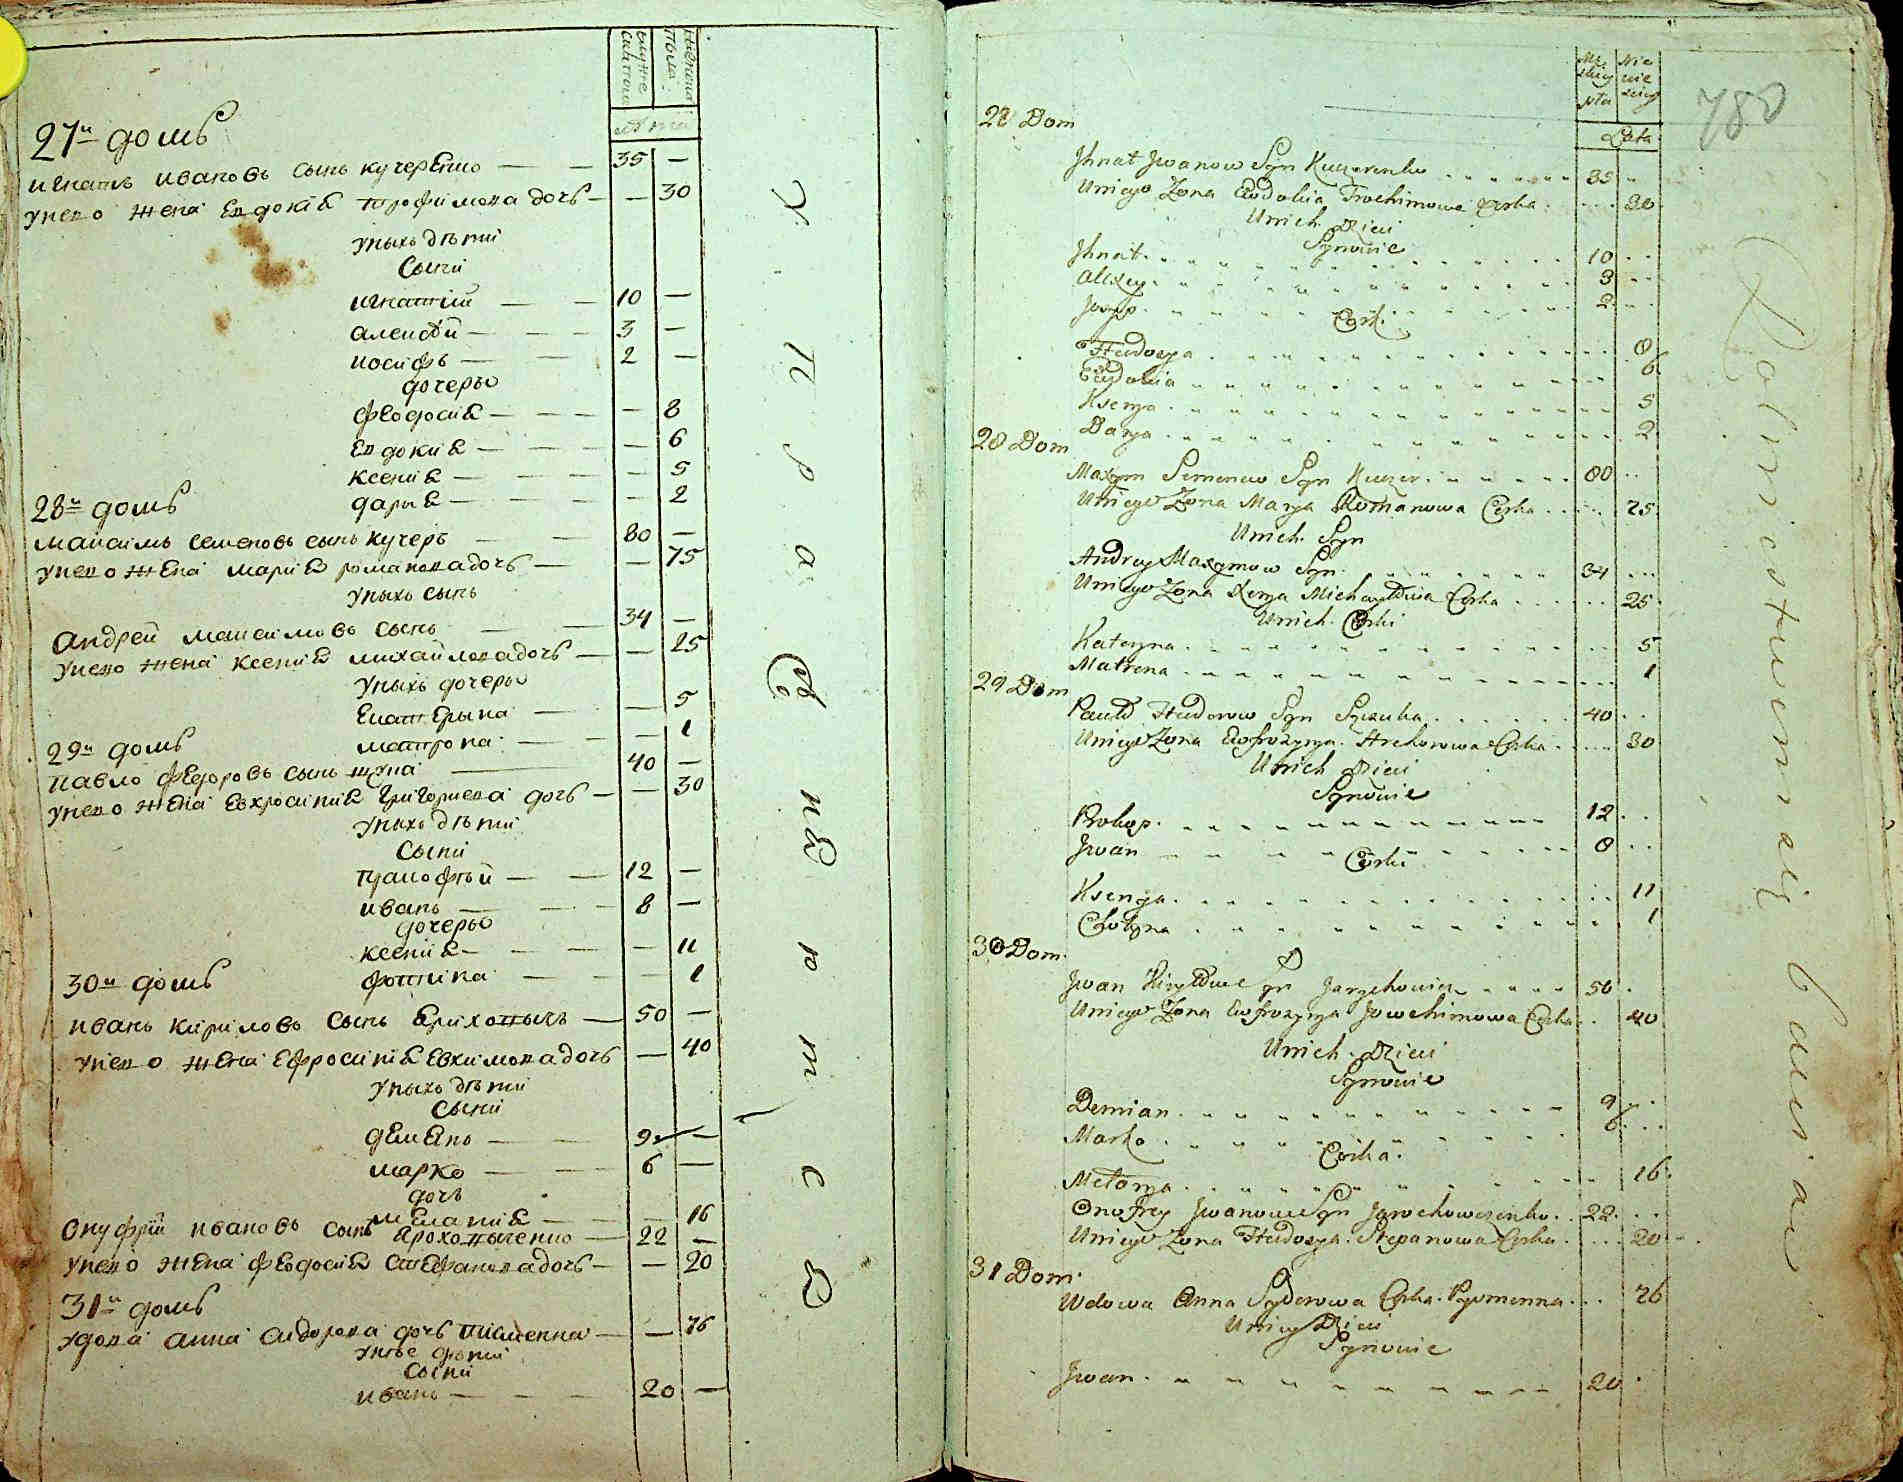 мужеска
пола
женска
пола
лѣта
27й домъ
игнатъ ивановъ сынъ кучеренко — — 35 —
унего жена евдокія трофимова дочь — — 30
унихъ дѣти
сыни
игнатій — — 10 —
алексѣй — — 3 —
иосифъ — — 2 —
дочеры
феодосия — — — 8
евдокия — — — 6
ксения — — — 5
дария — — — 2
28й домъ
максимъ семеновъ сынъ кучеръ — — 80 —
унего жена мария романова дочь — — 75
унихъ сынъ
андрей максимовъ сынъ — — 34 —
унего жена ксения михайлова дочь — — 25
унихъ дочеры
екатерына — — 5
матрона — — — 1
29й домъ
павло федоровъ сынъ — 40 —
унего жена евхросиния григориева дочь — — 30
унихъ дѣти
сыни
— — 12 —
иванъ — — 8 —
дочеры
ксения — — — 11
фотина — — — 1
30й домъ
иванъ кириловъ сынъ — 50 —
унего жена ефросиния евхимова дочь — 40
унихъ дѣти
сыни
демяно — — 9 —
марко — — 6 —
дочь
мелания — — — 16
онуфрій ивановъ сынъ — 22 —
унего жена феодосия стефанова дочь — — 20
31й домъ
удова анна сидорова дочь писменна — — 76
унее дѣти
сыни
иванъ — — — 20 —
Męskiey
płci
Niewieściey
Lata
780
Dom
Jhnat Jwanow Syn Kuczerenko 35
Uniego Zona Ewdokia Trochimowa Corka 30
Unich Dzieci
Synowie
Jhnat 10
Alexey 3
Josyp 2
Cork.
Fteodosya 8
Ewdokia 6
Ksenya 5
Darya 2
28 Dom
Maxym Semenow Syn Kuczer 80
Uniego Zona Marya Romanowa Corka 75
Unich Syn
Andrey Maxymow Syn 34
Uniego Zona Xenya Michayłowa Corka 25
Unich Corki
Kateryna 5
Matrona 1
29 Dom
Pawło Fteodorow Syn 40
Uniego Zona Ewfrozyna Hrehorowa Corka 30
Unich Dzieci
Synowie
Prokop 12
Jwan 8
Corki
Ksenya 11
Chotyna 1
30 Dom
Jwan Kiryłowe Syn 50
Uniego Zona Ewfrozyna Jowchimowa Corka 40
Unich Dzieci
Synowie
Demian 9
Marko 6
Corka
Melanya 16
Onofrey Jwanowe Syn 22
Uniego Zona Fteodosya Stepanowa Corka 20
31 Dom
Wdowa Anna Syderowa Corka Pysmenna 76
Uniey Dzieci
Synowie
Jwan 20